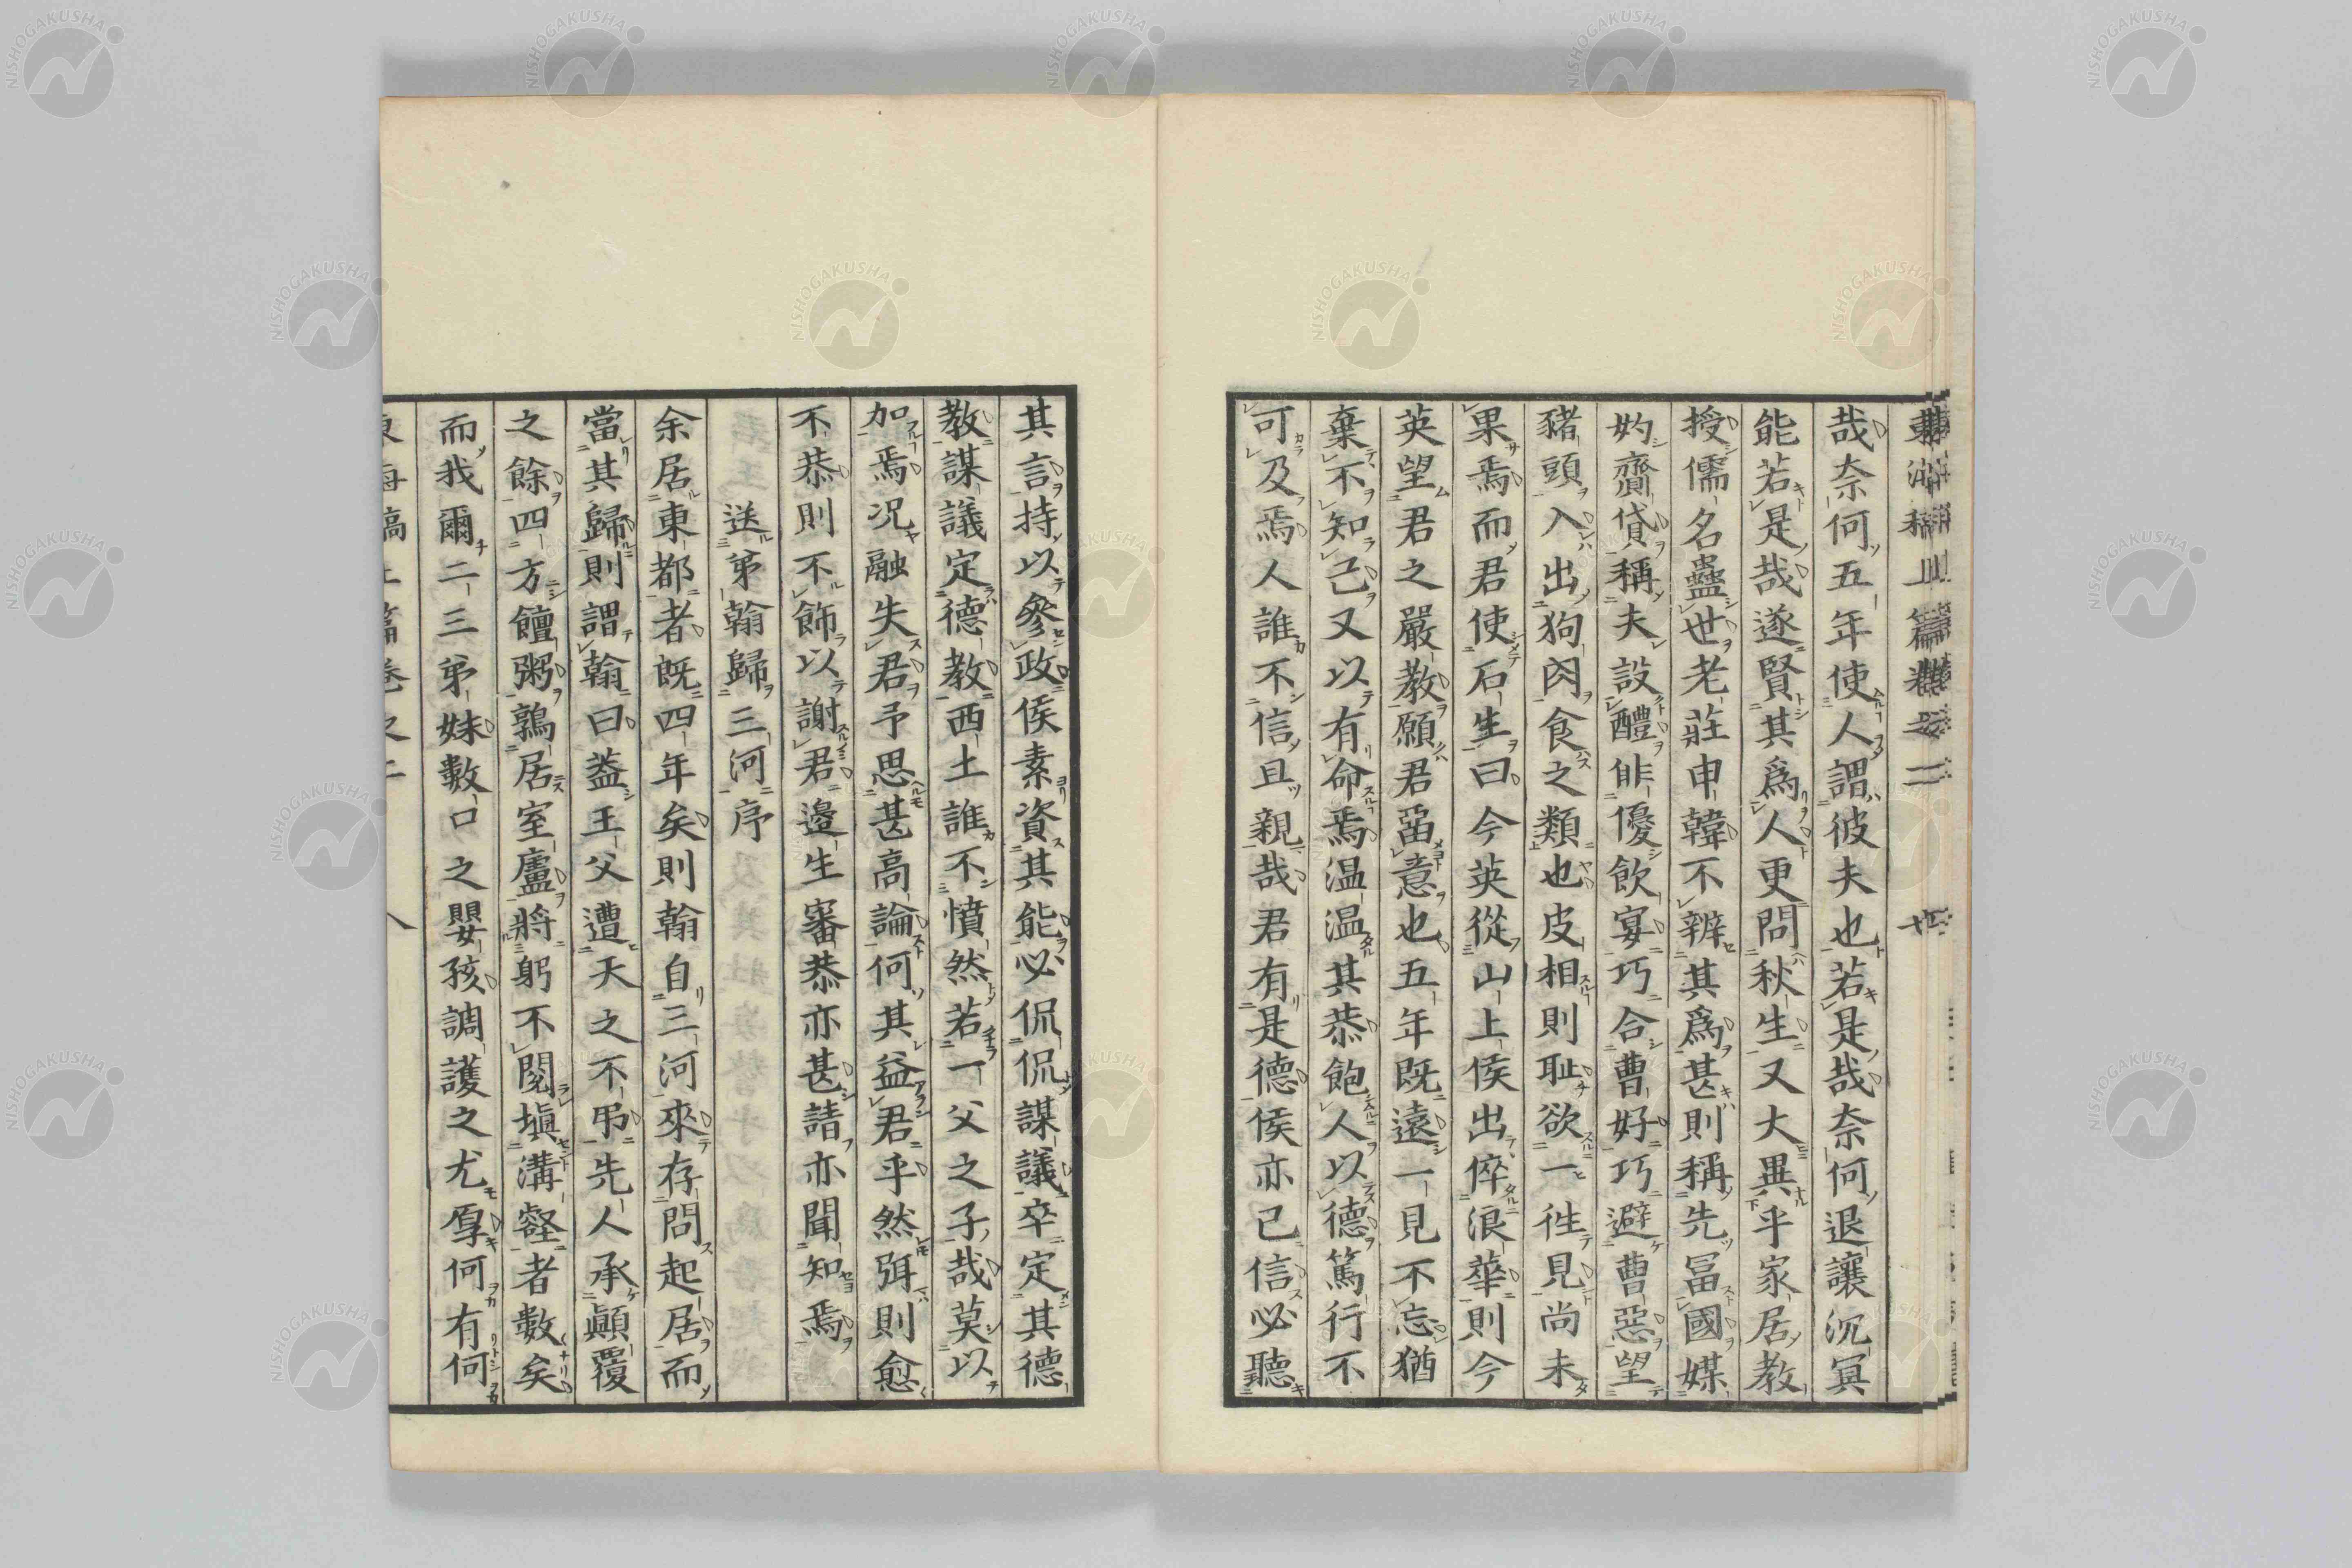 哉奈何五年使人謂彼夫也若是哉奈何退讓沉冥
能若是哉遂賢其爲人更問秋生又大異乎家居教
授儒名蠱世老莊申韓不辨其爲甚則稱先冨國媒
妁齎貸稱夫設醴俳優飲宴巧合曹好巧避曹惡望
豬頭入出狗肉食之類也皮相則耻欲一徃見尚未
果焉而君使石生曰今英從山上侯出倅浪華則今
英望君之嚴教願君畱意也五年既遠一見不忘猶
棄不知己又以有命焉温温其恭飽人以德篤行不
可及焉人誰不信且親哉君有是德侯亦已信必聽
其言持以參政侯素資其能必侃侃謀議卒定其德
教謀議定德教西土誰不憤然若一父之子哉莫以
加焉况融失君予思甚高論何其益君乎然弭則愈
不恭則不飾以謝君邉生審恭亦甚請亦聞知焉
送弟翰歸三河序
余居東都者既四年矣則翰自三河來存問起居而
當其歸則謂翰曰葢王父遭天之不弔先人承顚覆
之餘四方饘粥鶉居室廬將躬不閱塡溝壑者數矣
而我爾二三弟妹數口之嬰孩調護之尤厚何有何
NISHOGAKUSHA